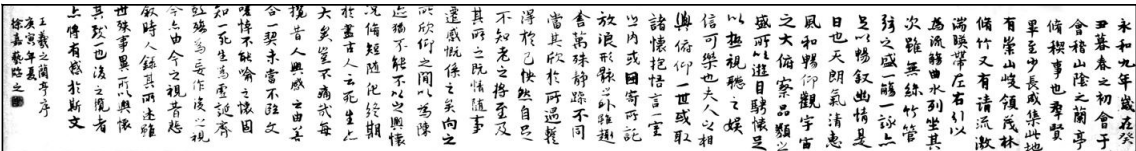 永和九年歲在癸
丑暮春之初會于
會稽山陰之蘭亭
脩稧事也羣賢
畢至少長咸集此地
有崇山峻領茂林
脩竹又有清流激
湍暎帶左右引以
為流觴曲水列坐其
次雖無絲竹管
弦之盛一觴一詠亦
足以暢敘幽情是
日也天朗氣清惠
風和暢仰觀宇宙
之大俯察品類之
盛所以遊目騁懷足
以極視聽之娛
信可樂也夫人之相
與俯仰一世或取
諸懷抱悟言一室
之內或因寄所託
放浪形骸之外雖趣
舍萬殊靜躁不同
當其欣於所遇蹔
得於己怏然自足
不知老之將至及
其所之既惓隨事
遷感慨係之矣向之
所欣仰之間以為陳
迹猶不能不以之興懷
況脩短隨化終期
於盡古人云死生亦
大矣豈不痛哉每
攬昔人興感之由若
合一契未嘗不臨文
嗟悼不能喻之懷固
知一死生為虛誕齊
彭殤為妄作後之視
今亦由今之視昔悲
敘時人錄其所述雖
世殊事異所興懷
其致一也後之覽者
亦將有感於斯文
王羲之蘭亭序
庚寅年夏
徐嘉藝臨之